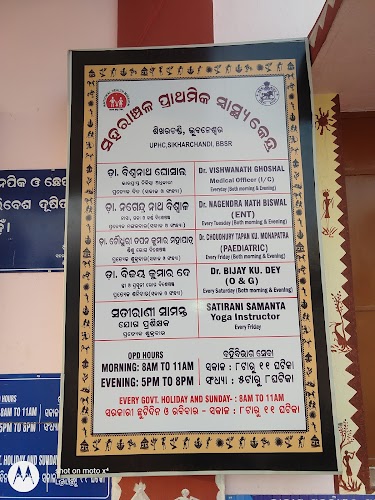 ସହରାଞ୍ଚଳ ପ୍ରାଥମିକ ସ୍ୱାସ୍ଥ୍ୟ କେନ୍ଦ୍ର
ଶିଖରଚଣ୍ଡି, ଭୁବନେଶ୍ୱର
UPHC,SIKHARCHANDI, BBSR
ଡା. ବିଶ୍ୱନାଥ ଘୋଷାଲ
Dr. VISHWANATH GHOSHAL
Medical Officer (I/C)
Everyday (Both morning & Evening)
ଡା. ନଗେନ୍ଦ୍ର ନାଥ ବିଶ୍ୱାଳ
Dr. NAGENDRA NATH BISWAL
(ENT)
Every Tuesday (Both morning & Evening)
ଡା. ଚୌଧୁରୀ ତପନ କୁମାର ମହାପାତ୍ର
Dr. CHOUDHURY TAPAN KU. MOHAPATRA
(PAEDIATRIC)
Every Friday (Both morning & Evening)
ଡା. ବିଜୟ କୁମାର ଦେ
Dr. BIJAY KU. DEY
(O & G)
Every Saturday (Both morning & Evening)
ସତୀରାଣୀ ସାମନ୍ତ
ଯୋଗ ପ୍ରଶିକ୍ଷକ
ପ୍ରତ୍ୟେକ ଶୁକ୍ରବାର
SATIRANI SAMANTA
Yoga Instructor
Every Friday
OPD HOURS
MORNING: 8AM TO 11AM
EVENING: 5PM TO 8PM
ବହିର୍ବିଭାଗ ସେବା
ସକାଳ : ୮ଟାରୁ ୧୧ ଘଟିକା
ସଂଧ୍ୟା : ୫ଟାରୁ ୮ଘଟିକା
EVERY GOVT. HOLIDAY AND SUNDAY- : 8AM TO 11AM
ସରକାରୀ ଛୁଟିଦିନ ଓ ରବିବାର - ସକାଳ : ୮ଟାରୁ ୧୧ ଘଟିକା
HOURS
8AM TO 11AM
HOLIDAY AND SUND
shot on moto x⁴
MOTOROLA